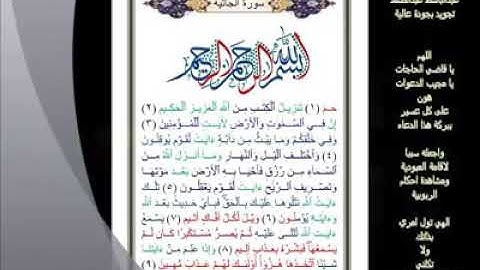 سورة الجاثية
بسم الله الرحمن الرحيم
حم (١) تنزيل الكتب من الله العزيز الحكيم (٢)
إن في السموت والأرض لأيت للمؤمنين (٣)
وفي خلقكم وما يبث من دابة ءايت لقوم يوقنون
(٤) واختلف اليل والنهار وما أنزل الله من
السماء من رزق فأحيا به الأرض بعد موتها
وتصريف الريح ءايت لقوم يعقلون (٥) تلك
ءايت الله نتلوها عليك بالحق فبأي حديث بعد الله
وءايته يؤمنون (٦) ويل لكل أفاك أثيم (٧) يسمع
ءايت الله تتلى عليه ثم يصر مستكبرا كأن لم
يسمعها فبشره بعذاب أليم (٨) وإذا علم من ءايتنا
شيئا اتخذها هزوا أولئك لهم عذاب مهين (٩)
تجويد بجودة عالية
اللهم
يا قاضي الحاجات
يا مجيب الدعوات
هون
علي كل عسير
ببركة هذا الدعاء
واجعله سببا
لاقامة العبودية
ومشاهدة احكام
الربوبية
الهي تول امري
بذاتك
ولا
تكلني